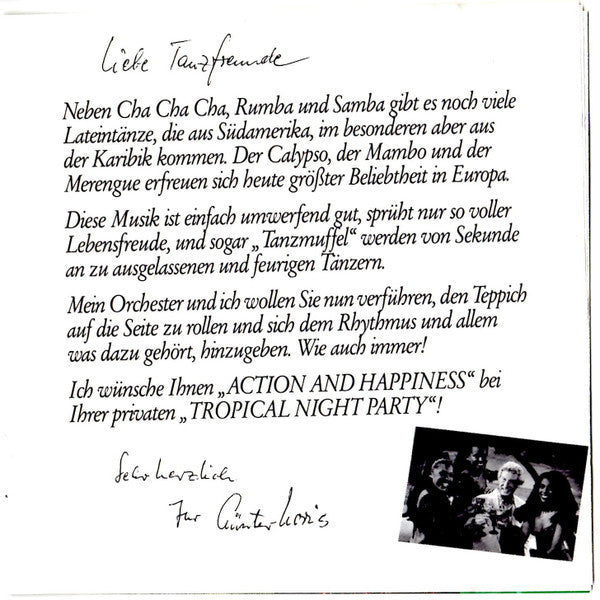 Liebe Tanzfreunde
Neben Cha Cha Cha, Rumba und Samba gibt es noch viele
Lateintänze, die aus Südamerika, im besonderen aber aus
der Karibik kommen. Der Calypso, der Mambo und der
Merengue erfreuen sich heute größter Beliebtheit in Europa.
Diese Musik ist einfach umwerfend gut, sprüht nur so voller
Lebensfreude, und sogar „Tanzmuffel“ werden von Sekunde
an zu ausgelassenen und feurigen Tänzern.
Mein Orchester und ich wollen Sie nun verführen, den Teppich
auf die Seite zu rollen und sich dem Rhythmus und allem
was dazu gehört, hinzugeben. Wie auch immer!
Ich wünsche Ihnen „ACTION AND HAPPINESS“ bei
Ihrer privaten „TROPICAL NIGHT PARTY“!
Sehr herzlich
Ihr Günter Noris